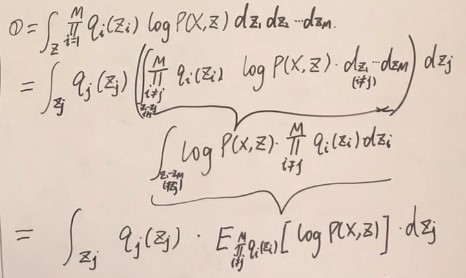 ① = ∫_Z ∏_{i=1}^{M} q_i(z_i) log P(X,Z) dz_1 dz_2 ⋯ dz_M.
= ∫_{z_j} q_j(z_j) ( ∫_{z_1-z_M (i≠j)} ∏_{i≠j}^{M} q_i(z_i) log P(X,Z) · dz_1 ⋯ dz_M (i≠j) ) dz_j
∫_{z_1-z_M (i≠j)} log P(X,Z) · ∏_{i≠j}^{M} q_i(z_i) dz_i
= ∫_{z_j} q_j(z_j) · E_{∏_{i≠j}^{M} q_i(z_i)} [ log P(X,Z) ] · dz_j